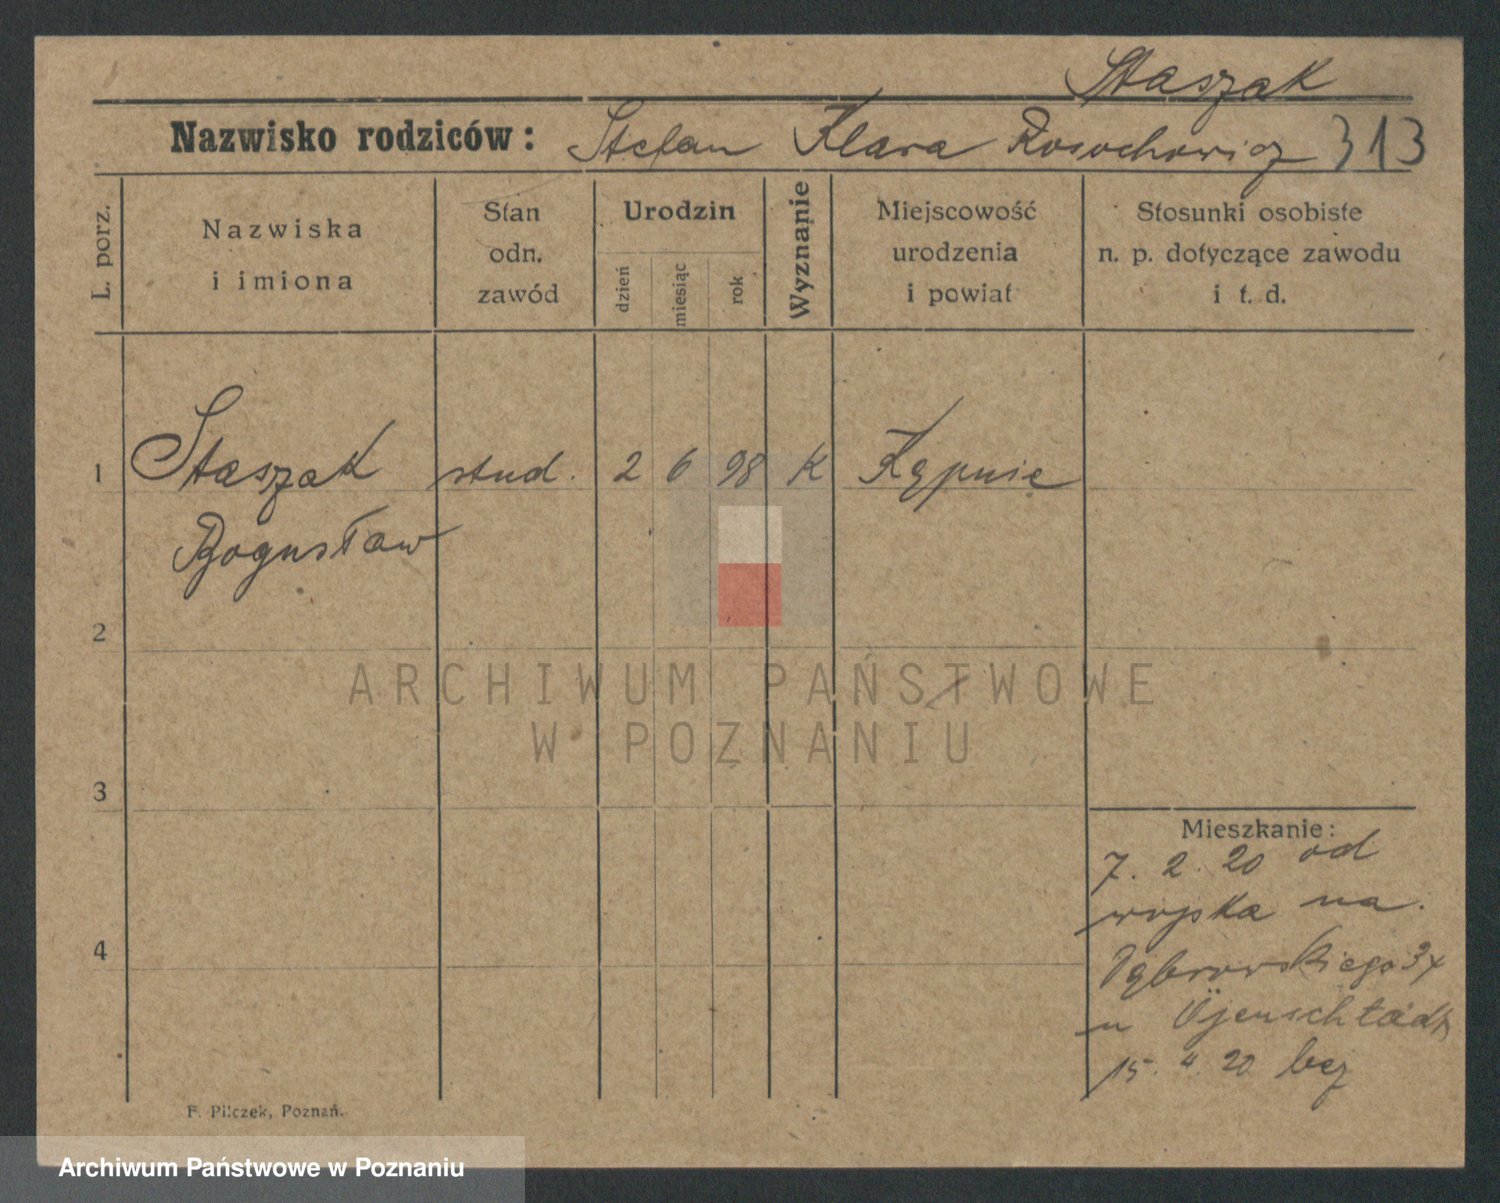 Staszak
Nazwisko rodziców: Stefan Klara Rosochowicz 313
L. porz.
Nazwiska
i imiona
Stan
odn.
zawód
Urodzin
dzień
miesiąc
rok
Wyznanie
Miejscowość
urodzenia
i powiat
Stosunki osobiste
n. p. dotyczące zawodu
i t. d.
1 Staszak stud. 2 6 98 K Kępnie
Bogusław
2
ARCHIWUM PAŃSTWOWE
W POZNANIU
3
Mieszkanie:
7. 2. 20 od
wojska na
4
Dąbrowskiego
u
15. 4. 20 bez
F. Pilczek, Poznań.
Archiwum Państwowe w Poznaniu